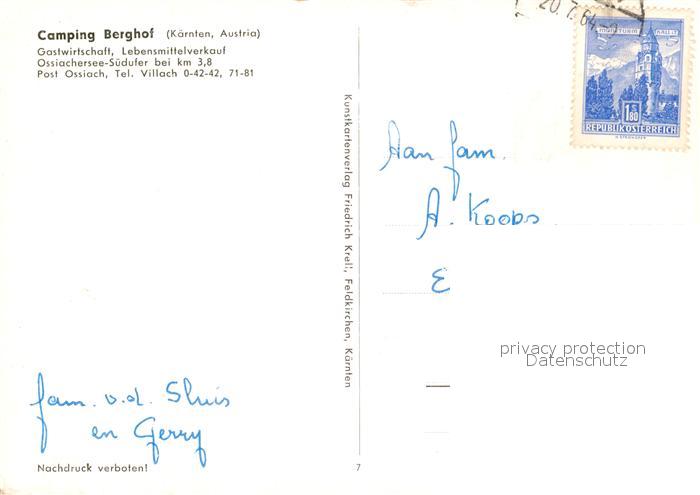 Camping Berghof (Kärnten, Austria)
Gastwirtschaft, Lebensmittelverkauf
Ossiachersee-Südufer bei km 3,8
Post Ossiach, Tel. Villach 0-42-42, 71-81
fam. v.d. Sluis
en Gerry
Nachdruck verboten!
Kunstkartenverlag Friedrich Krell, Feldkirchen, Kärnten
7
20.7.64-
MÜNZTURM HALL i.T.
S
1.80
REPUBLIK ÖSTERREICH
Aan fam.
A. Koobs
E
privacy protection
Datenschutz